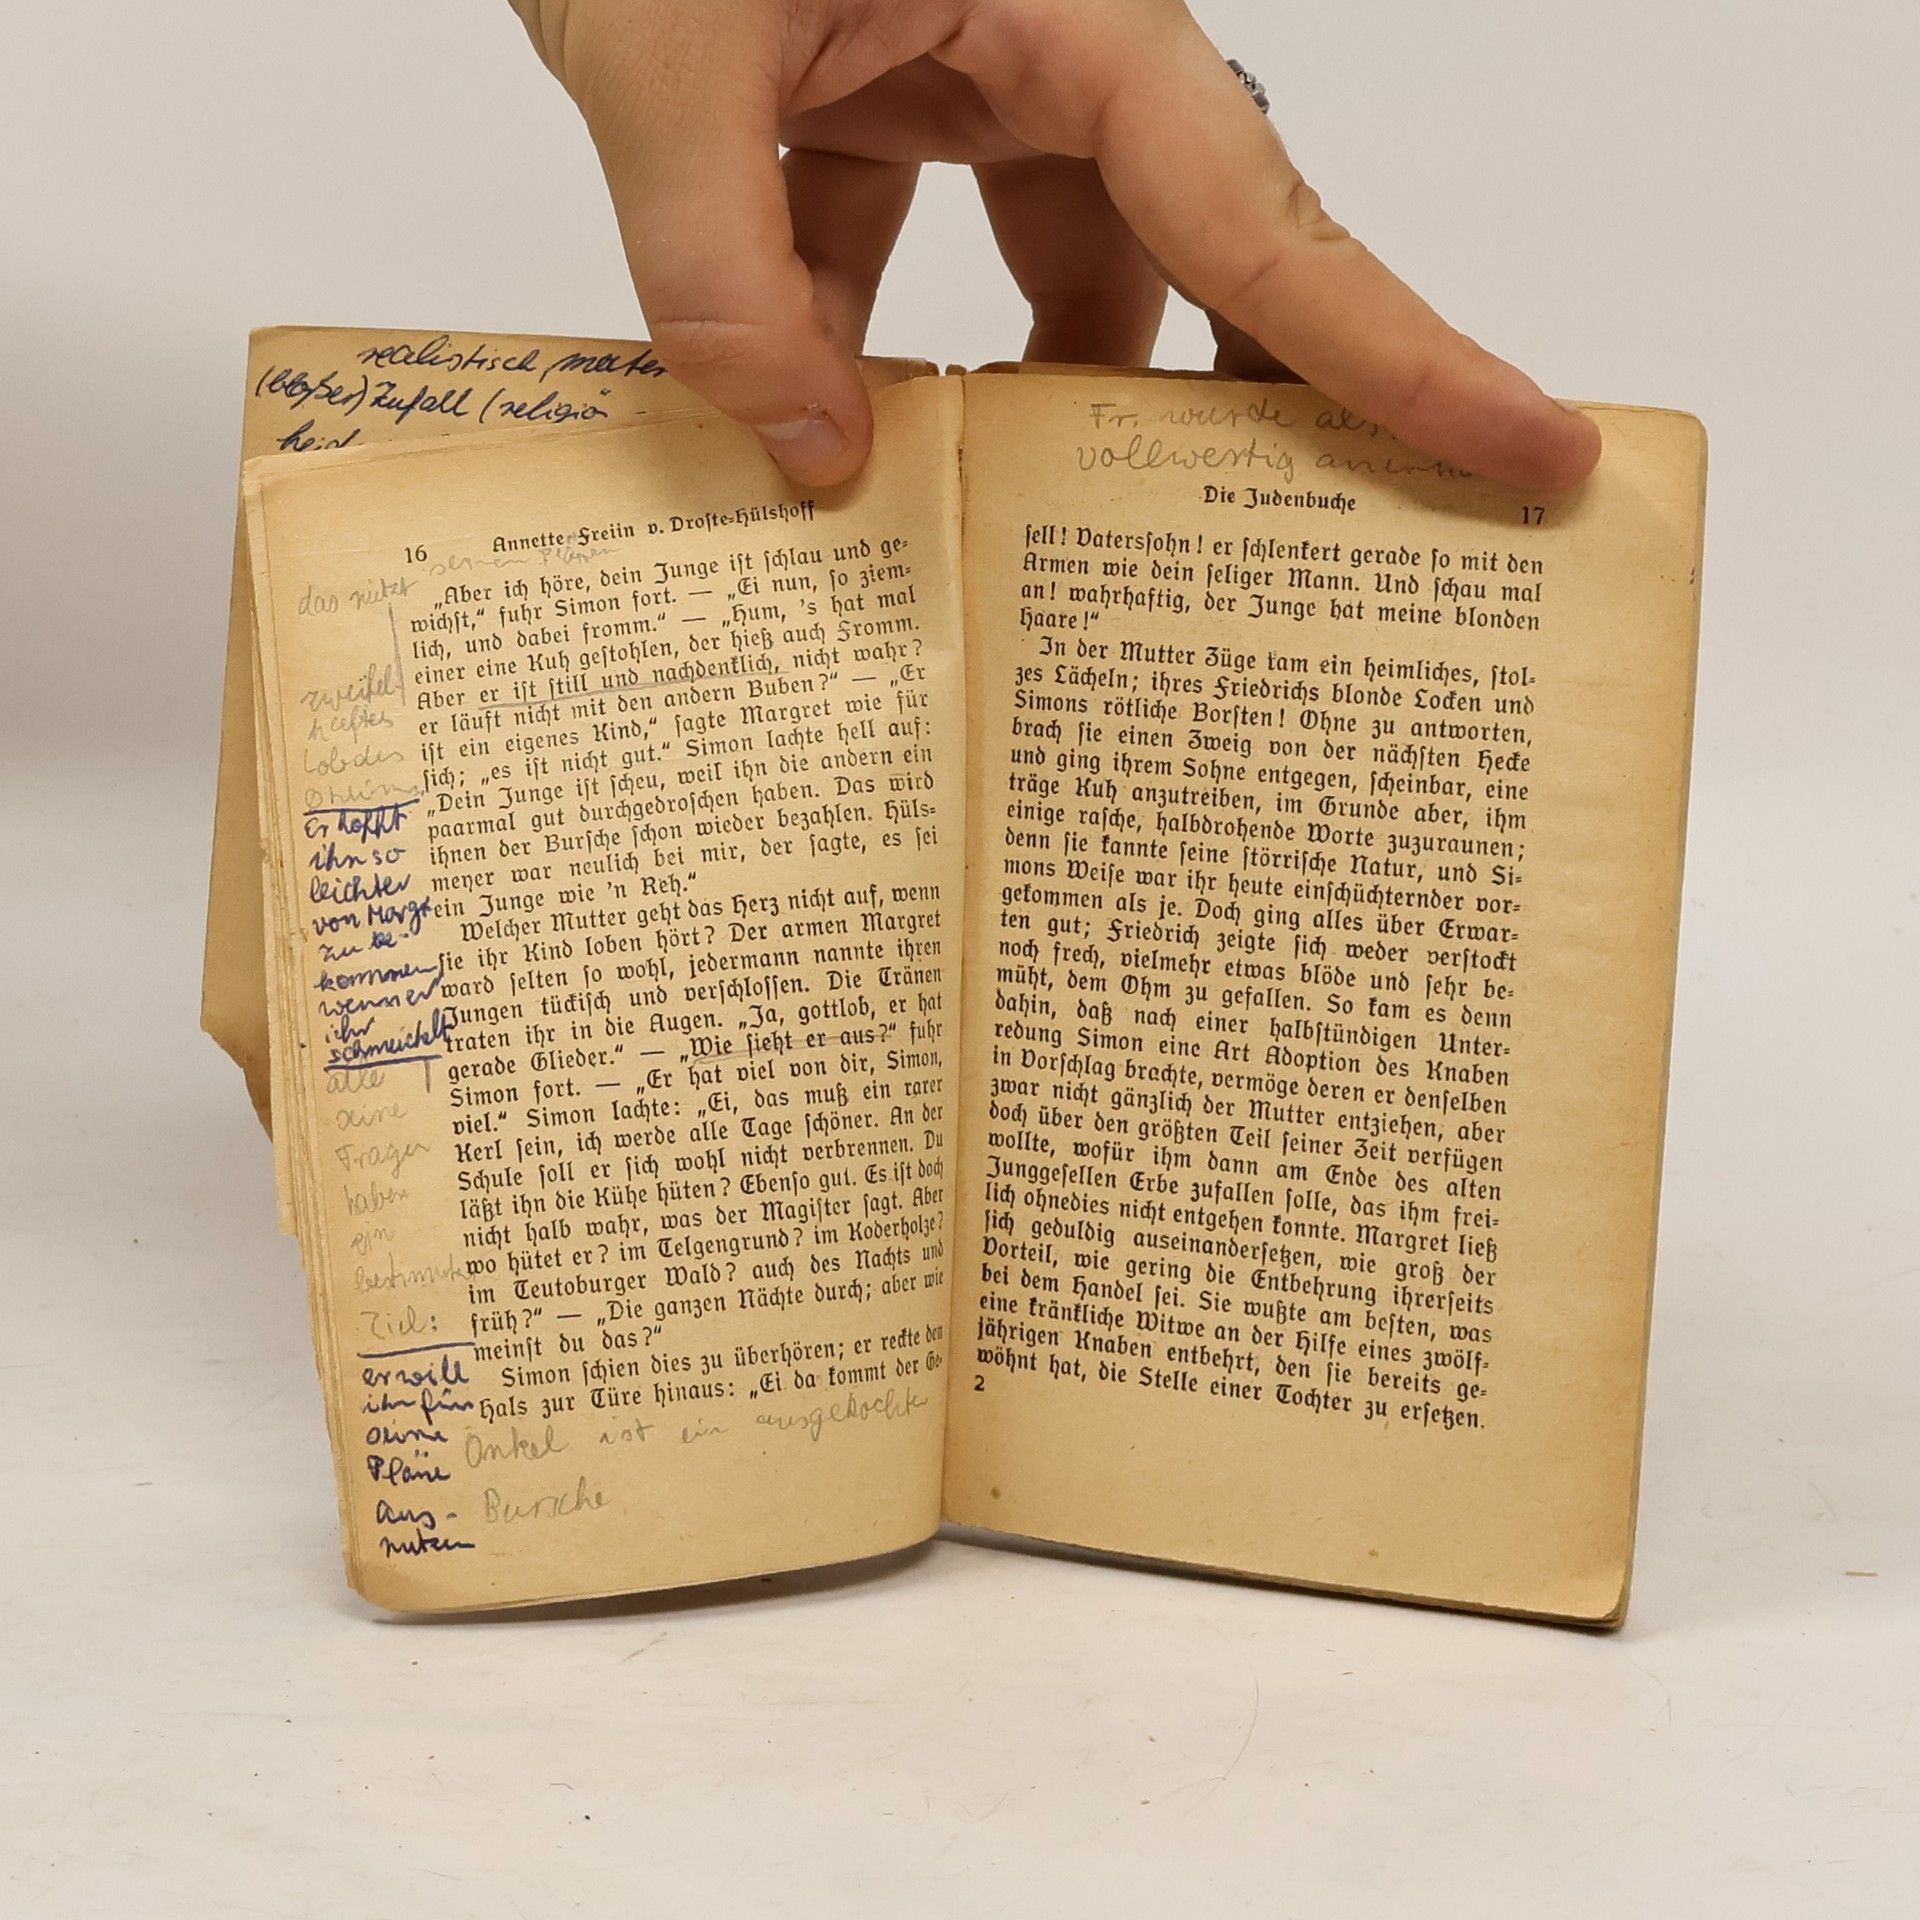 realistisch,
(bloßer) Zufall (religiö
16 Annette Freiin v. Droste-Hülshoff
seinen Plänen
das nützt
„Aber ich höre, dein Junge ist schlau und ge-
wichst,“ fuhr Simon fort. — „Ei nun, so ziem-
lich, und dabei fromm.“ — „Hum, 's hat mal
einer eine Kuh gestohlen, der hieß auch Fromm.
Aber er ist still und nachdenklich, nicht wahr?
er läuft nicht mit den andern Buben?“ — „Er
ist ein eigenes Kind,“ sagte Margret wie für
sich; „es ist nicht gut.“ Simon lachte hell auf:
„Dein Junge ist scheu, weil ihn die andern ein
paarmal gut durchgedroschen haben. Das wird
ihnen der Bursche schon wieder bezahlen. Hüls-
meyer war neulich bei mir, der sagte, es sei
ein Junge wie 'n Reh.“
Welcher Mutter geht das Herz nicht auf, wenn
sie ihr Kind loben hört? Der armen Margret
ward selten so wohl, jedermann nannte ihren
Jungen tückisch und verschlossen. Die Tränen
traten ihr in die Augen. „Ja, gottlob, er hat
gerade Glieder.“ — „Wie sieht er aus?“ fuhr
Simon fort. — „Er hat viel von dir, Simon,
viel.“ Simon lachte: „Ei, das muß ein rarer
Kerl sein, ich werde alle Tage schöner. An der
Schule soll er sich wohl nicht verbrennen. Du
läßt ihn die Kühe hüten? Ebenso gut. Es ist doch
nicht halb wahr, was der Magister sagt. Aber
wo hütet er? im Telgengrund? im Roderholze?
im Teutoburger Wald? auch des Nachts und
früh?“ — „Die ganzen Nächte durch; aber wie
meinst du das?“
Simon schien dies zu überhören; er reckte den
Hals zur Türe hinaus: „Ei da kommt der Ge-
zweifel-
haftes
Lob des
Oheims
Er hofft
ihn so
leichter
von Margr
zu be-
kommen
wenn er
ihr
schmeichelt
alle
seine
Fragen
haben
ein
bestimmtes
Ziel:
er will
ihn für
seine
Pläne
aus-
nutzen
Onkel ist ein ausgekochter
Bursche
Fr. wurde als
vollwertig
Die Judenbuche 17
sell! Vaterssohn! er schlenkert gerade so mit den
Armen wie dein seliger Mann. Und schau mal
an! wahrhaftig, der Junge hat meine blonden
Haare!“
In der Mutter Züge kam ein heimliches, stol-
zes Lächeln; ihres Friedrichs blonde Locken und
Simons rötliche Borsten! Ohne zu antworten,
brach sie einen Zweig von der nächsten Hecke
und ging ihrem Sohne entgegen, scheinbar, eine
träge Kuh anzutreiben, im Grunde aber, ihm
einige rasche, halbdrohende Worte zuzuraunen;
denn sie kannte seine störrische Natur, und Si-
mons Weise war ihr heute einschüchternder vor-
gekommen als je. Doch ging alles über Erwar-
ten gut; Friedrich zeigte sich weder verstockt
noch frech, vielmehr etwas blöde und sehr be-
müht, dem Ohm zu gefallen. So kam es denn
dahin, daß nach einer halbstündigen Unter-
redung Simon eine Art Adoption des Knaben
in Vorschlag brachte, vermöge deren er denselben
zwar nicht gänzlich der Mutter entziehen, aber
doch über den größten Teil seiner Zeit verfügen
wollte, wofür ihm dann am Ende des alten
Junggesellen Erbe zufallen solle, das ihm frei-
lich ohnedies nicht entgehen konnte. Margret ließ
sich geduldig auseinandersetzen, wie groß der
Vorteil, wie gering die Entbehrung ihrerseits
bei dem Handel sei. Sie wußte am besten, was
eine kränkliche Witwe an der Hilfe eines zwölf-
jährigen Knaben entbehrt, den sie bereits ge-
wöhnt hat, die Stelle einer Tochter zu ersetzen.
2